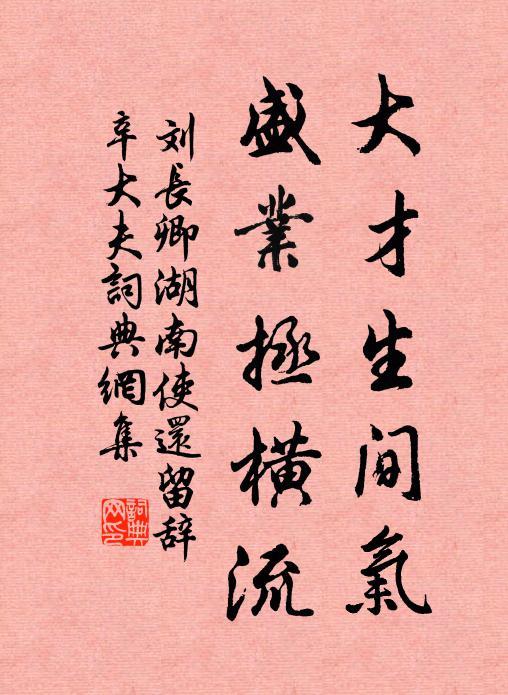 大才生间氣
盛業拯橫流
刘長卿湖南使還留辞
辛大夫詞典網集
詞典
网印